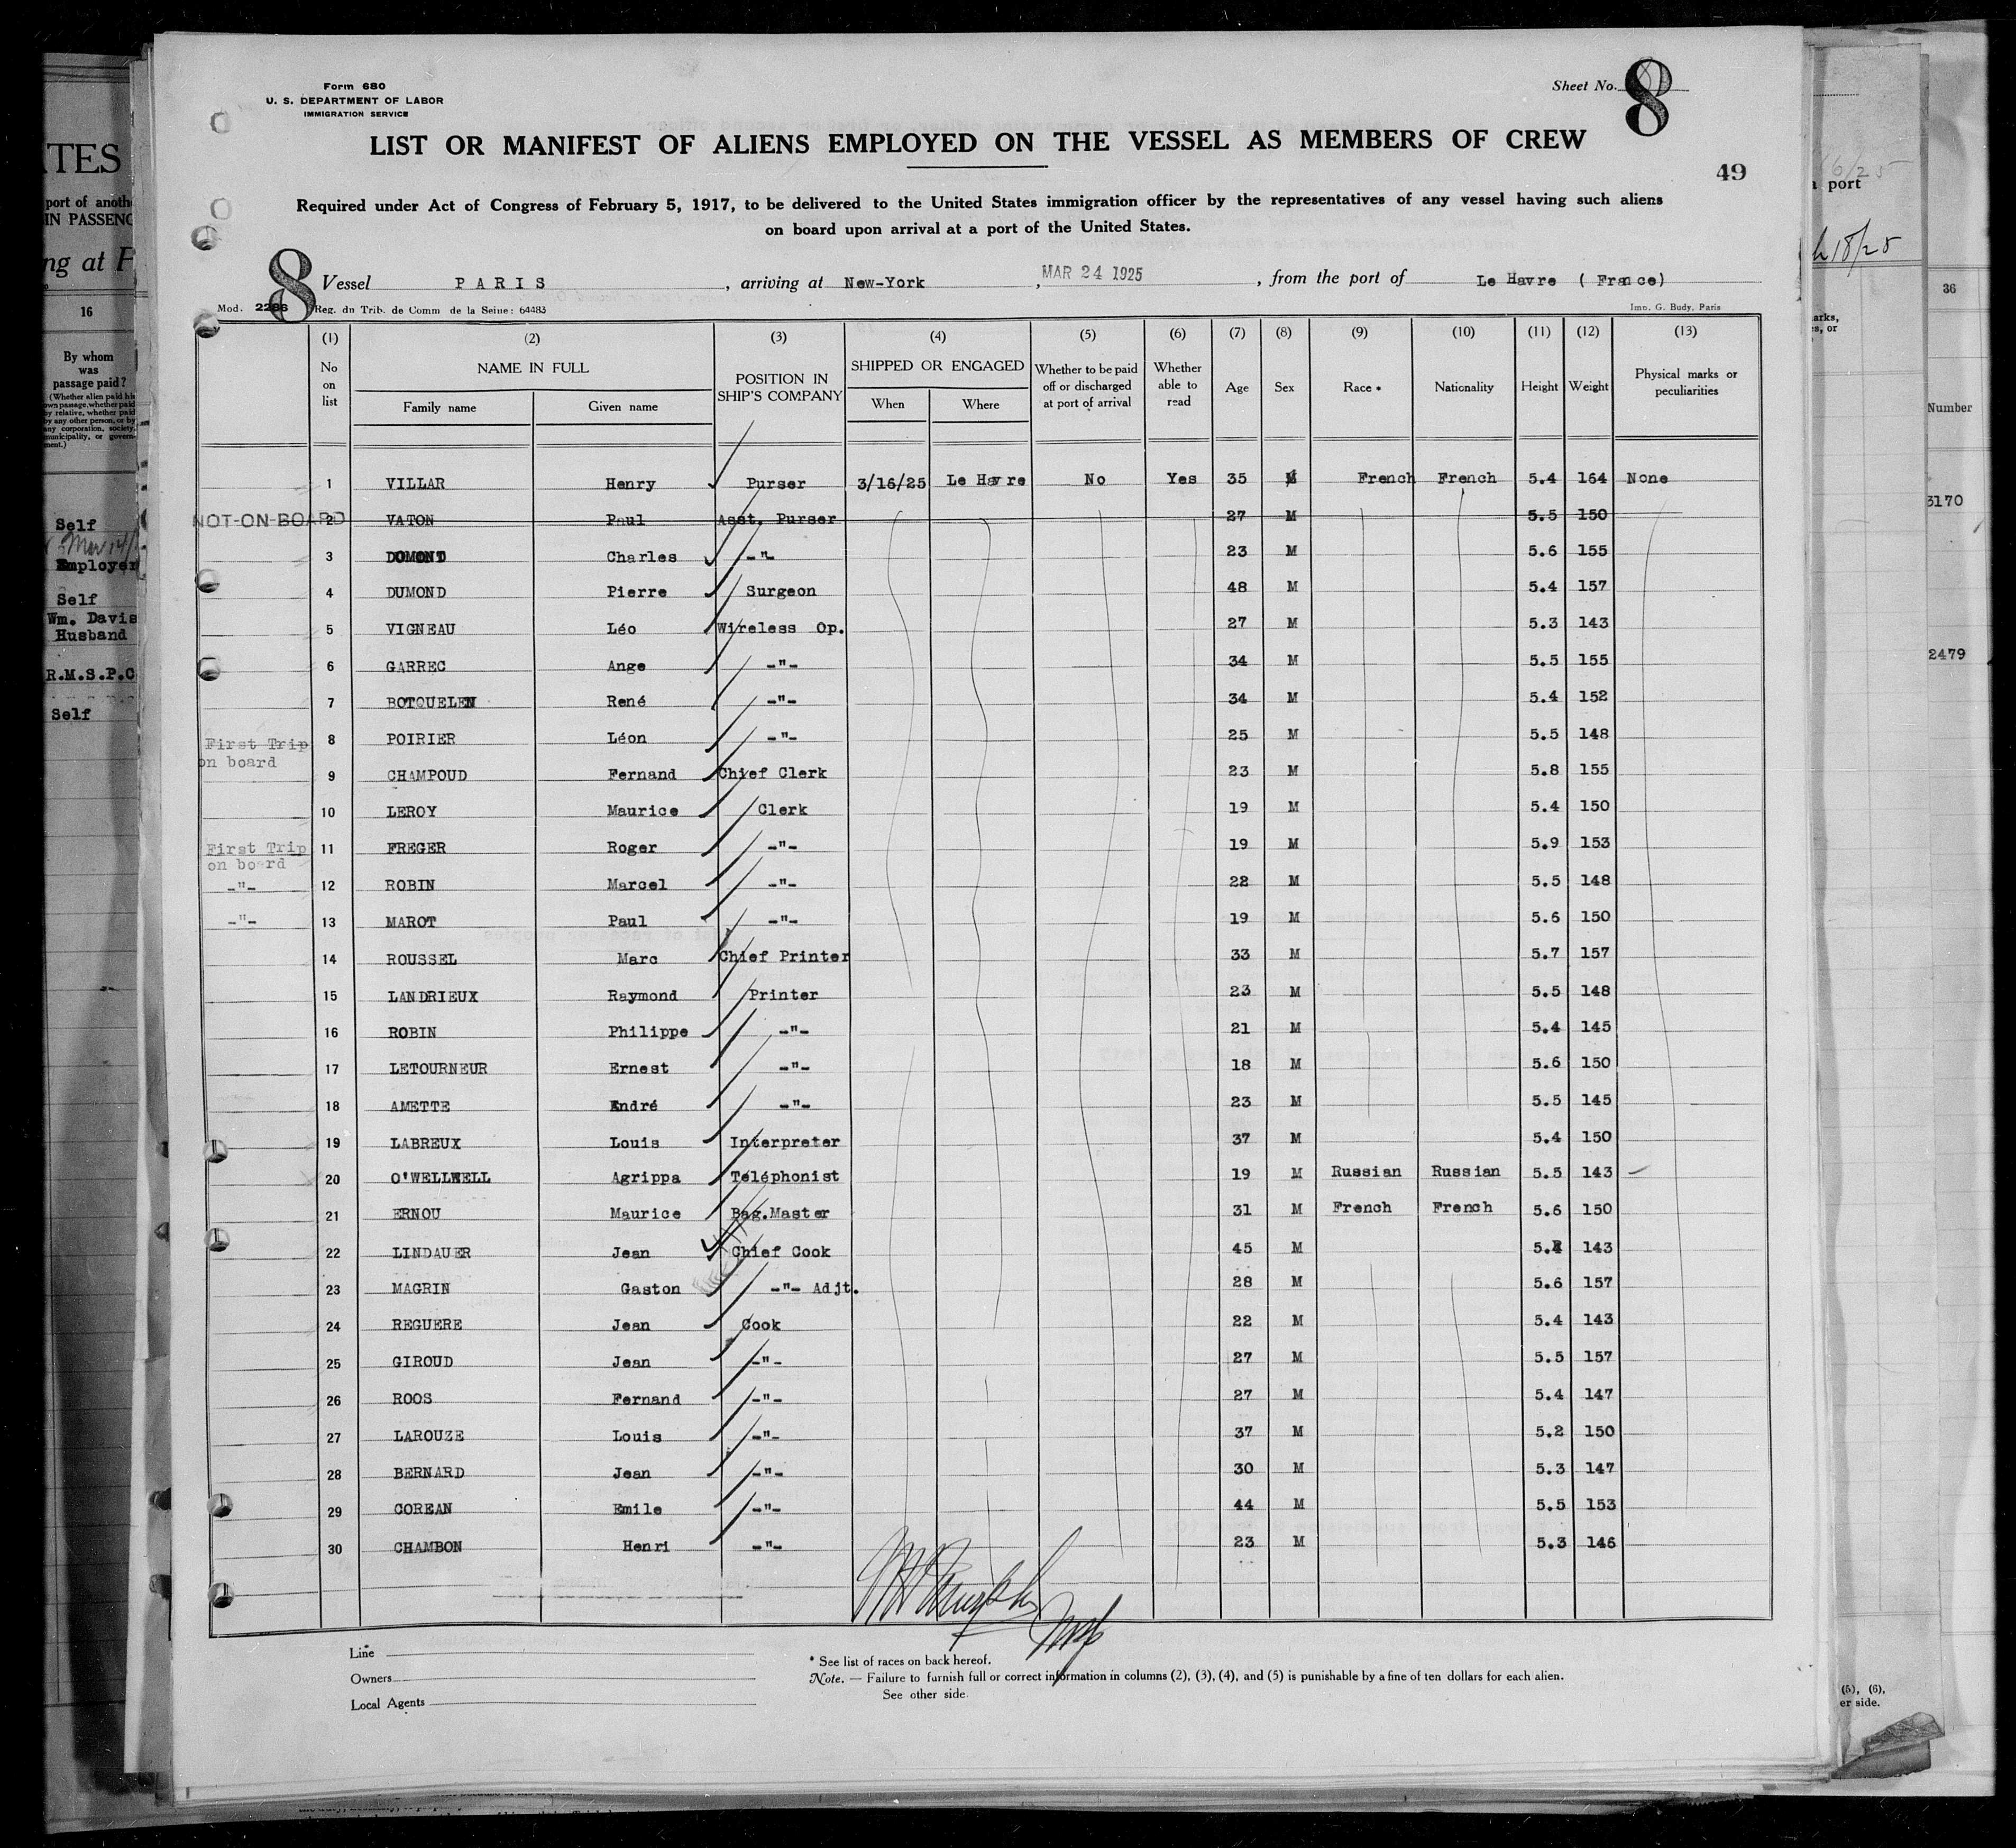 Form 680
U. S. DEPARTMENT OF LABOR
IMMIGRATION SERVICE
Sheet No. 8
LIST OR MANIFEST OF ALIENS EMPLOYED ON THE VESSEL AS MEMBERS OF CREW
49
Required under Act of Congress of February 5, 1917, to be delivered to the United States immigration officer by the representatives of any vessel having such aliens
on board upon arrival at a port of the United States.
8 Vessel PARIS, arriving at New-York, MAR 24 1925, from the port of Le Havre (France)
Mod. 2286 Reg. du Trib. de Comm de la Seine: 64483 Imp. G. Budy, Paris
(1) (2) (3) (4) (5) (6) (7) (8) (9) (10) (11) (12) (13)
No on list NAME IN FULL Family name Given name POSITION IN SHIP'S COMPANY SHIPPED OR ENGAGED When Where Whether to be paid off or discharged at port of arrival Whether able to read Age Sex Race * Nationality Height Weight Physical marks or peculiarities
1 VILLAR Henry Purser 3/16/25 Le Havre No Yes 35 M French French 5.4 164 None
NOT-ON-BOARD 2 VATON Paul Asst. Purser 27 M 5.5 150
3 DOMONT Charles -"- 23 M 5.6 155
4 DUMOND Pierre Surgeon 48 M 5.4 157
5 VIGNEAU Léo Wireless Op. 27 M 5.3 143
6 GARREC Ange -"- 34 M 5.5 155
7 BOTQUELEN René -"- 34 M 5.4 152
First Trip on board 8 POIRIER Léon -"- 25 M 5.5 148
9 CHAMPOUD Fernand Chief Clerk 23 M 5.8 155
10 LEROY Maurice Clerk 19 M 5.4 150
First Trip on board 11 FREGER Roger -"- 19 M 5.9 153
-"- 12 ROBIN Marcel -"- 22 M 5.5 148
-"- 13 MAROT Paul -"- 19 M 5.6 150
14 ROUSSEL Marc Chief Printer 33 M 5.7 157
15 LANDRIEUX Raymond Printer 23 M 5.5 148
16 ROBIN Philippe -"- 21 M 5.4 145
17 LETOURNEUR Ernest -"- 18 M 5.6 150
18 AMETTE André -"- 23 M 5.5 145
19 LABREUX Louis Interpreter 37 M 5.4 150
20 O'WELLWELL Agrippa Téléphonist 19 M Russian Russian 5.5 143
21 ERNOU Maurice Bag.Master 31 M French French 5.6 150
22 LINDAUER Jean Chief Cook 45 M 143
23 MAGRIN Gaston -"- Adjt. 28 M 5.6 157
24 REGUERE Jean Cook 22 M 5.4 143
25 GIROUD Jean -"- 27 M 5.5 157
26 ROOS Fernand -"- 27 M 5.4 147
27 LAROUZE Louis -"- 37 M 5.2 150
28 BERNARD Jean -"- 30 M 5.3 147
29 COREAN Emile -"- 44 M 5.5 153
30 CHAMBON Henri -"- 23 M 5.3 146
Line
Owners
Local Agents
* See list of races on back hereof.
Note. — Failure to furnish full or correct information in columns (2), (3), (4), and (5) is punishable by a fine of ten dollars for each alien.
See other side.
16
By whom
was
passage paid?
Self
Employer
Self
Wm. Davis
Husband
R.M.S.P.C
Self
port
36
Number
3170
2479
(5), (6),
er side.